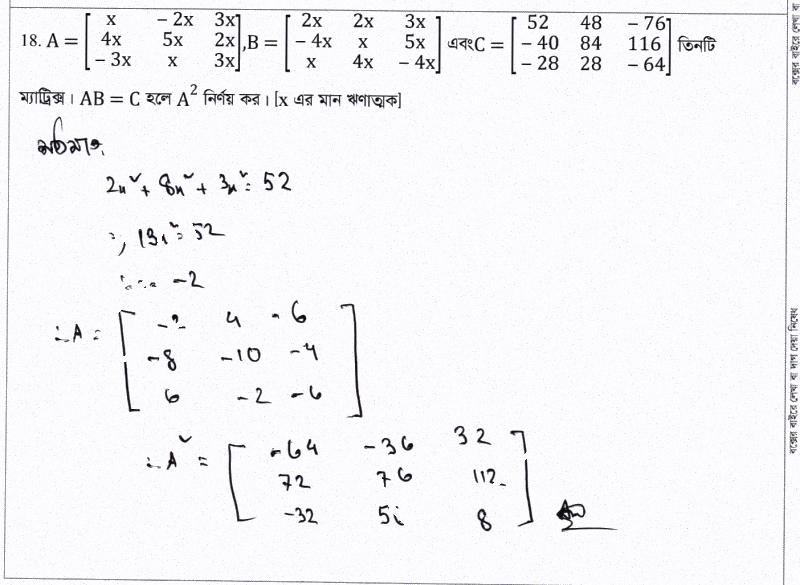 18. A = [x - 2x 3x; 4x 5x 2x; - 3x x 3x], B = [2x 2x 3x; - 4x x 5x; x 4x - 4x] এবং C = [52 48 - 76; - 40 84 116; - 28 28 - 64] তিনটি
ম্যাট্রিক্স। AB = C হলে A² নির্ণয় কর। [x এর মান ঋণাত্মক]
2x² + 8x² + 3x² = 52
13x² = 52
-2
∴ A = [-2 4 -6; -8 -10 -4; 6 -2 -6]
∴ A² = [-64 -36 32; 72 76 112; -32 8]
বক্সের বাইরে লেখা বা দাগ দেয়া নিষেধ
বক্সের বাইরে লেখা ব